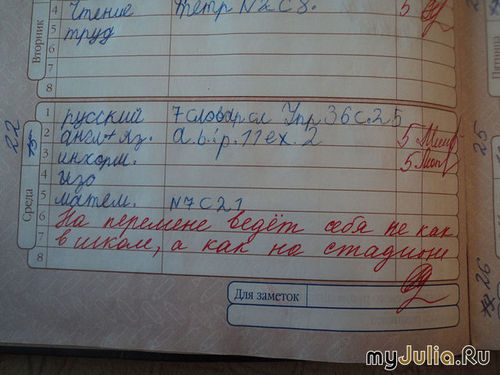 4 Чтение Тетр N2 С 8. 5
5 труд
6
7
8
Вторник
1 русский 7 словар сл Упр 36 с. 25
2 англ. яз. a.b. p. 11 ex. 2 5
3 информ. 5
4 изо
5 матем. N7 С 21
6 На перемене ведёт себя не как
7 в школе, а как на стадионе
8
Среда
22
25
26
Для заметок
myJulia.Ru